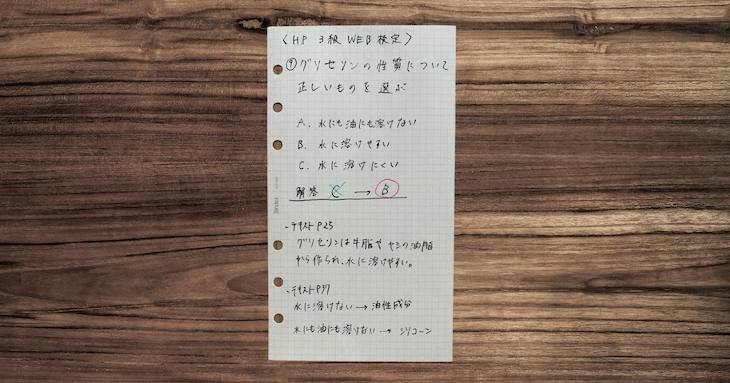 〈HP 3級 WEB検定〉
⑨グリセリンの性質について
正しいものを選ぶ
A. 水にも油にも溶けない
B. 水に溶けやすい
C. 水に溶けにくい
解答 C → B
・テキストP25
グリセリンは牛脂やヤシの油脂
から作られ、水に溶けやすい。
・テキストP77
水に溶けない→油性成分
水にも油にも溶けない→シリコーン